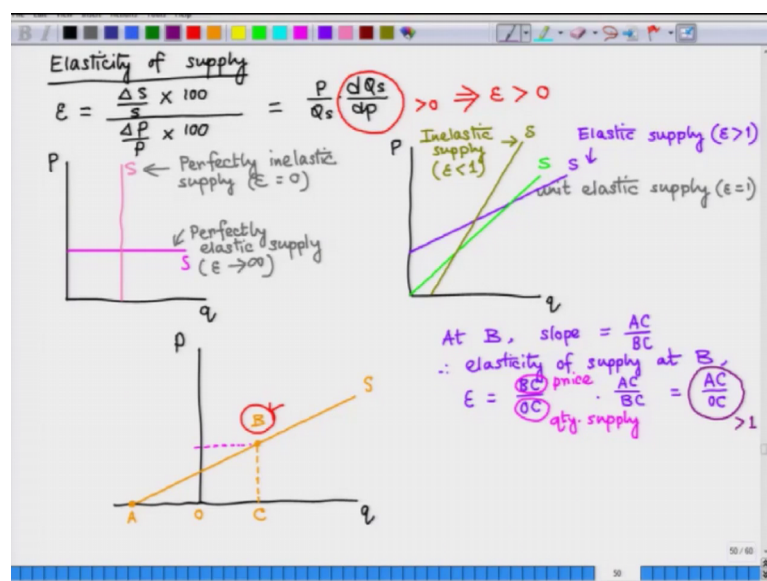 Elasticity of supply
ε = ΔS/S × 100 / ΔP/P × 100 = P/Qs · dQs/dp >0 ⇒ ε > 0
P
S ← Perfectly inelastic
supply (ε = 0)
Perfectly
elastic supply
S (ε → ∞)
q
P
Inelastic → S
supply
(ε < 1)
Elastic supply (ε>1)
S S
unit elastic supply (ε=1)
q
P
S
B
A O C q
At B, slope = AC/BC
∴ elasticity of supply at B,
ε = BC/OC · AC/BC = AC/OC >1
price
qty. supply
50 / 60
50